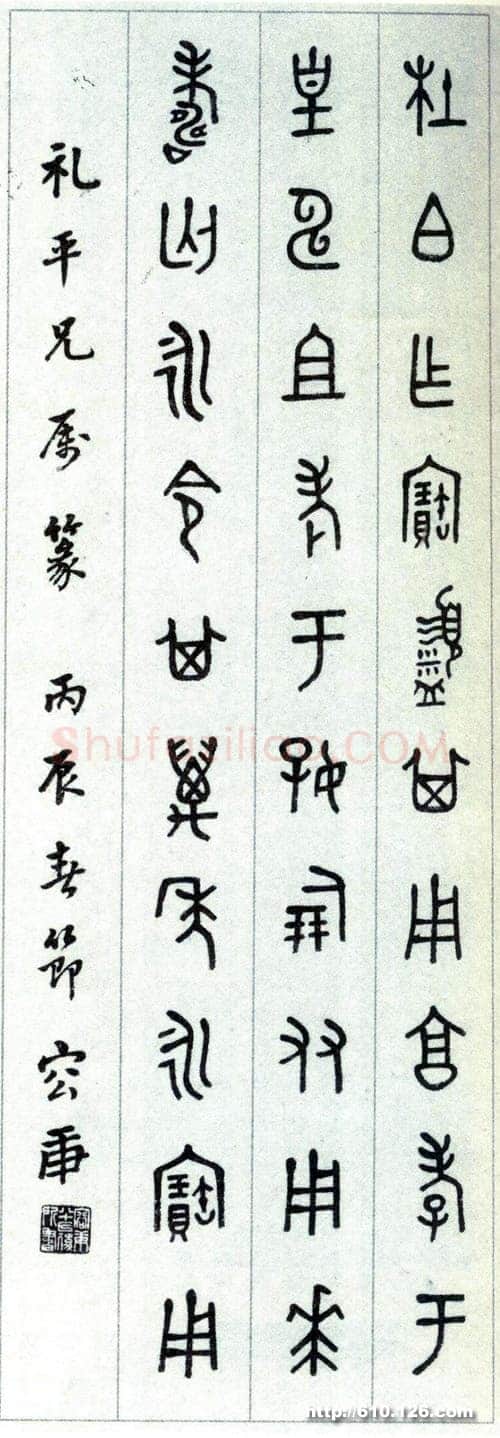 杜白乍寶盨其用享孝于
皇申且考于好倗友用𠦪
壽匄永令其萬年永寶用
礼平兄属篆 丙辰春節 容庚
Shufaziliao.COM
http://610.126.com